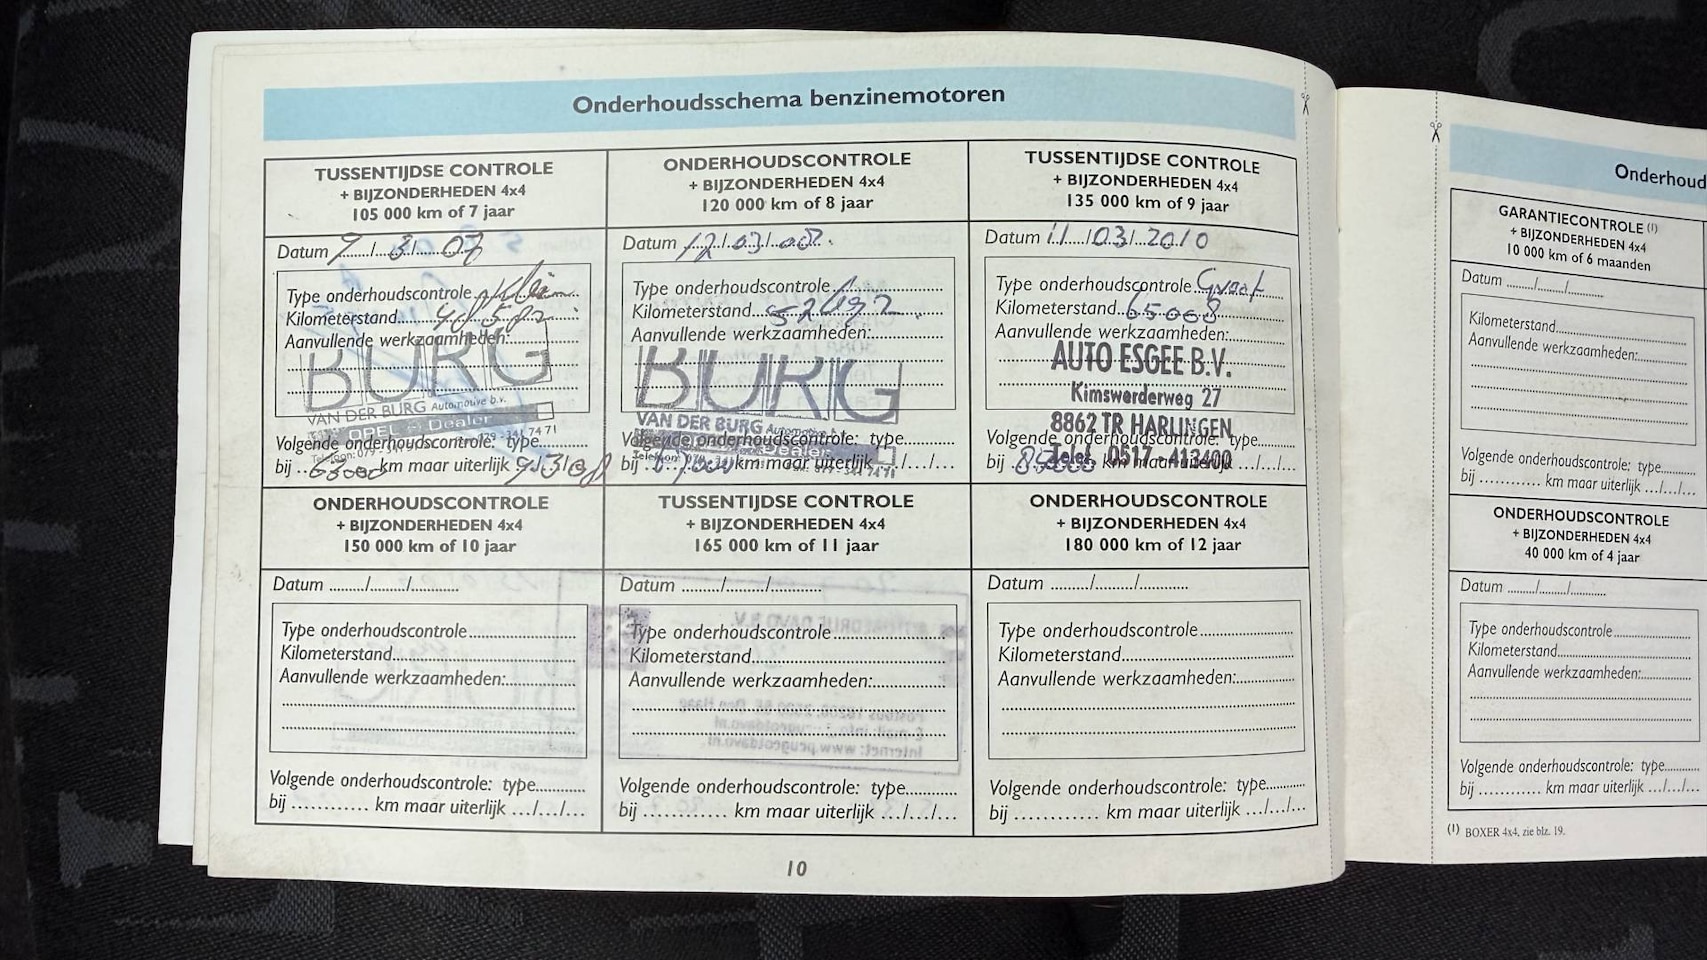 Onderhoudsschema benzinemotoren
TUSSENTIJDSE CONTROLE
+ BIJZONDERHEDEN 4x4
105 000 km of 7 jaar
Datum 7/3/07
Type onderhoudscontrole
Kilometerstand
Aanvullende werkzaamheden:
BURG
VAN DER BURG Automotive b.v.
OPEL Dealer
Volgende onderhoudscontrole: type
bij 63000 km maar uiterlijk 9/3/08
ONDERHOUDSCONTROLE
+ BIJZONDERHEDEN 4x4
120 000 km of 8 jaar
Datum 12/03/08
Type onderhoudscontrole
Kilometerstand
Aanvullende werkzaamheden:
BURG
VAN DER BURG Automotive
Dealer
Volgende onderhoudscontrole: type
bij 67000 km maar uiterlijk .../.../...
TUSSENTIJDSE CONTROLE
+ BIJZONDERHEDEN 4x4
135 000 km of 9 jaar
Datum 11/03/2010
Type onderhoudscontrole Groot
Kilometerstand 65008
Aanvullende werkzaamheden:
AUTO ESGEE B.V.
Kimswerderweg 27
8862 TR HARLINGEN
Telef. 0517 - 413400
Volgende onderhoudscontrole: type
bij 85000 km maar uiterlijk .../.../...
ONDERHOUDSCONTROLE
+ BIJZONDERHEDEN 4x4
150 000 km of 10 jaar
Datum ........./......../...........
Type onderhoudscontrole
Kilometerstand
Aanvullende werkzaamheden:
Volgende onderhoudscontrole: type
bij ............ km maar uiterlijk .../.../...
TUSSENTIJDSE CONTROLE
+ BIJZONDERHEDEN 4x4
165 000 km of 11 jaar
Datum ........./......../...........
Type onderhoudscontrole
Kilometerstand
Aanvullende werkzaamheden:
Volgende onderhoudscontrole: type
bij ............ km maar uiterlijk .../.../...
ONDERHOUDSCONTROLE
+ BIJZONDERHEDEN 4x4
180 000 km of 12 jaar
Datum ........./......../...........
Type onderhoudscontrole
Kilometerstand
Aanvullende werkzaamheden:
Volgende onderhoudscontrole: type
bij ............ km maar uiterlijk .../.../...
10
Onderhoud
GARANTIECONTROLE (1)
+ BIJZONDERHEDEN 4x4
10 000 km of 6 maanden
Datum ......../......./..........
Kilometerstand
Aanvullende werkzaamheden:
Volgende onderhoudscontrole: type
bij ............ km maar uiterlijk .../.../...
ONDERHOUDSCONTROLE
+ BIJZONDERHEDEN 4x4
40 000 km of 4 jaar
Datum ......../......./..........
Type onderhoudscontrole
Kilometerstand
Aanvullende werkzaamheden:
Volgende onderhoudscontrole: type
bij ............ km maar uiterlijk .../.../...
(1) BOXER 4x4, zie blz. 19.